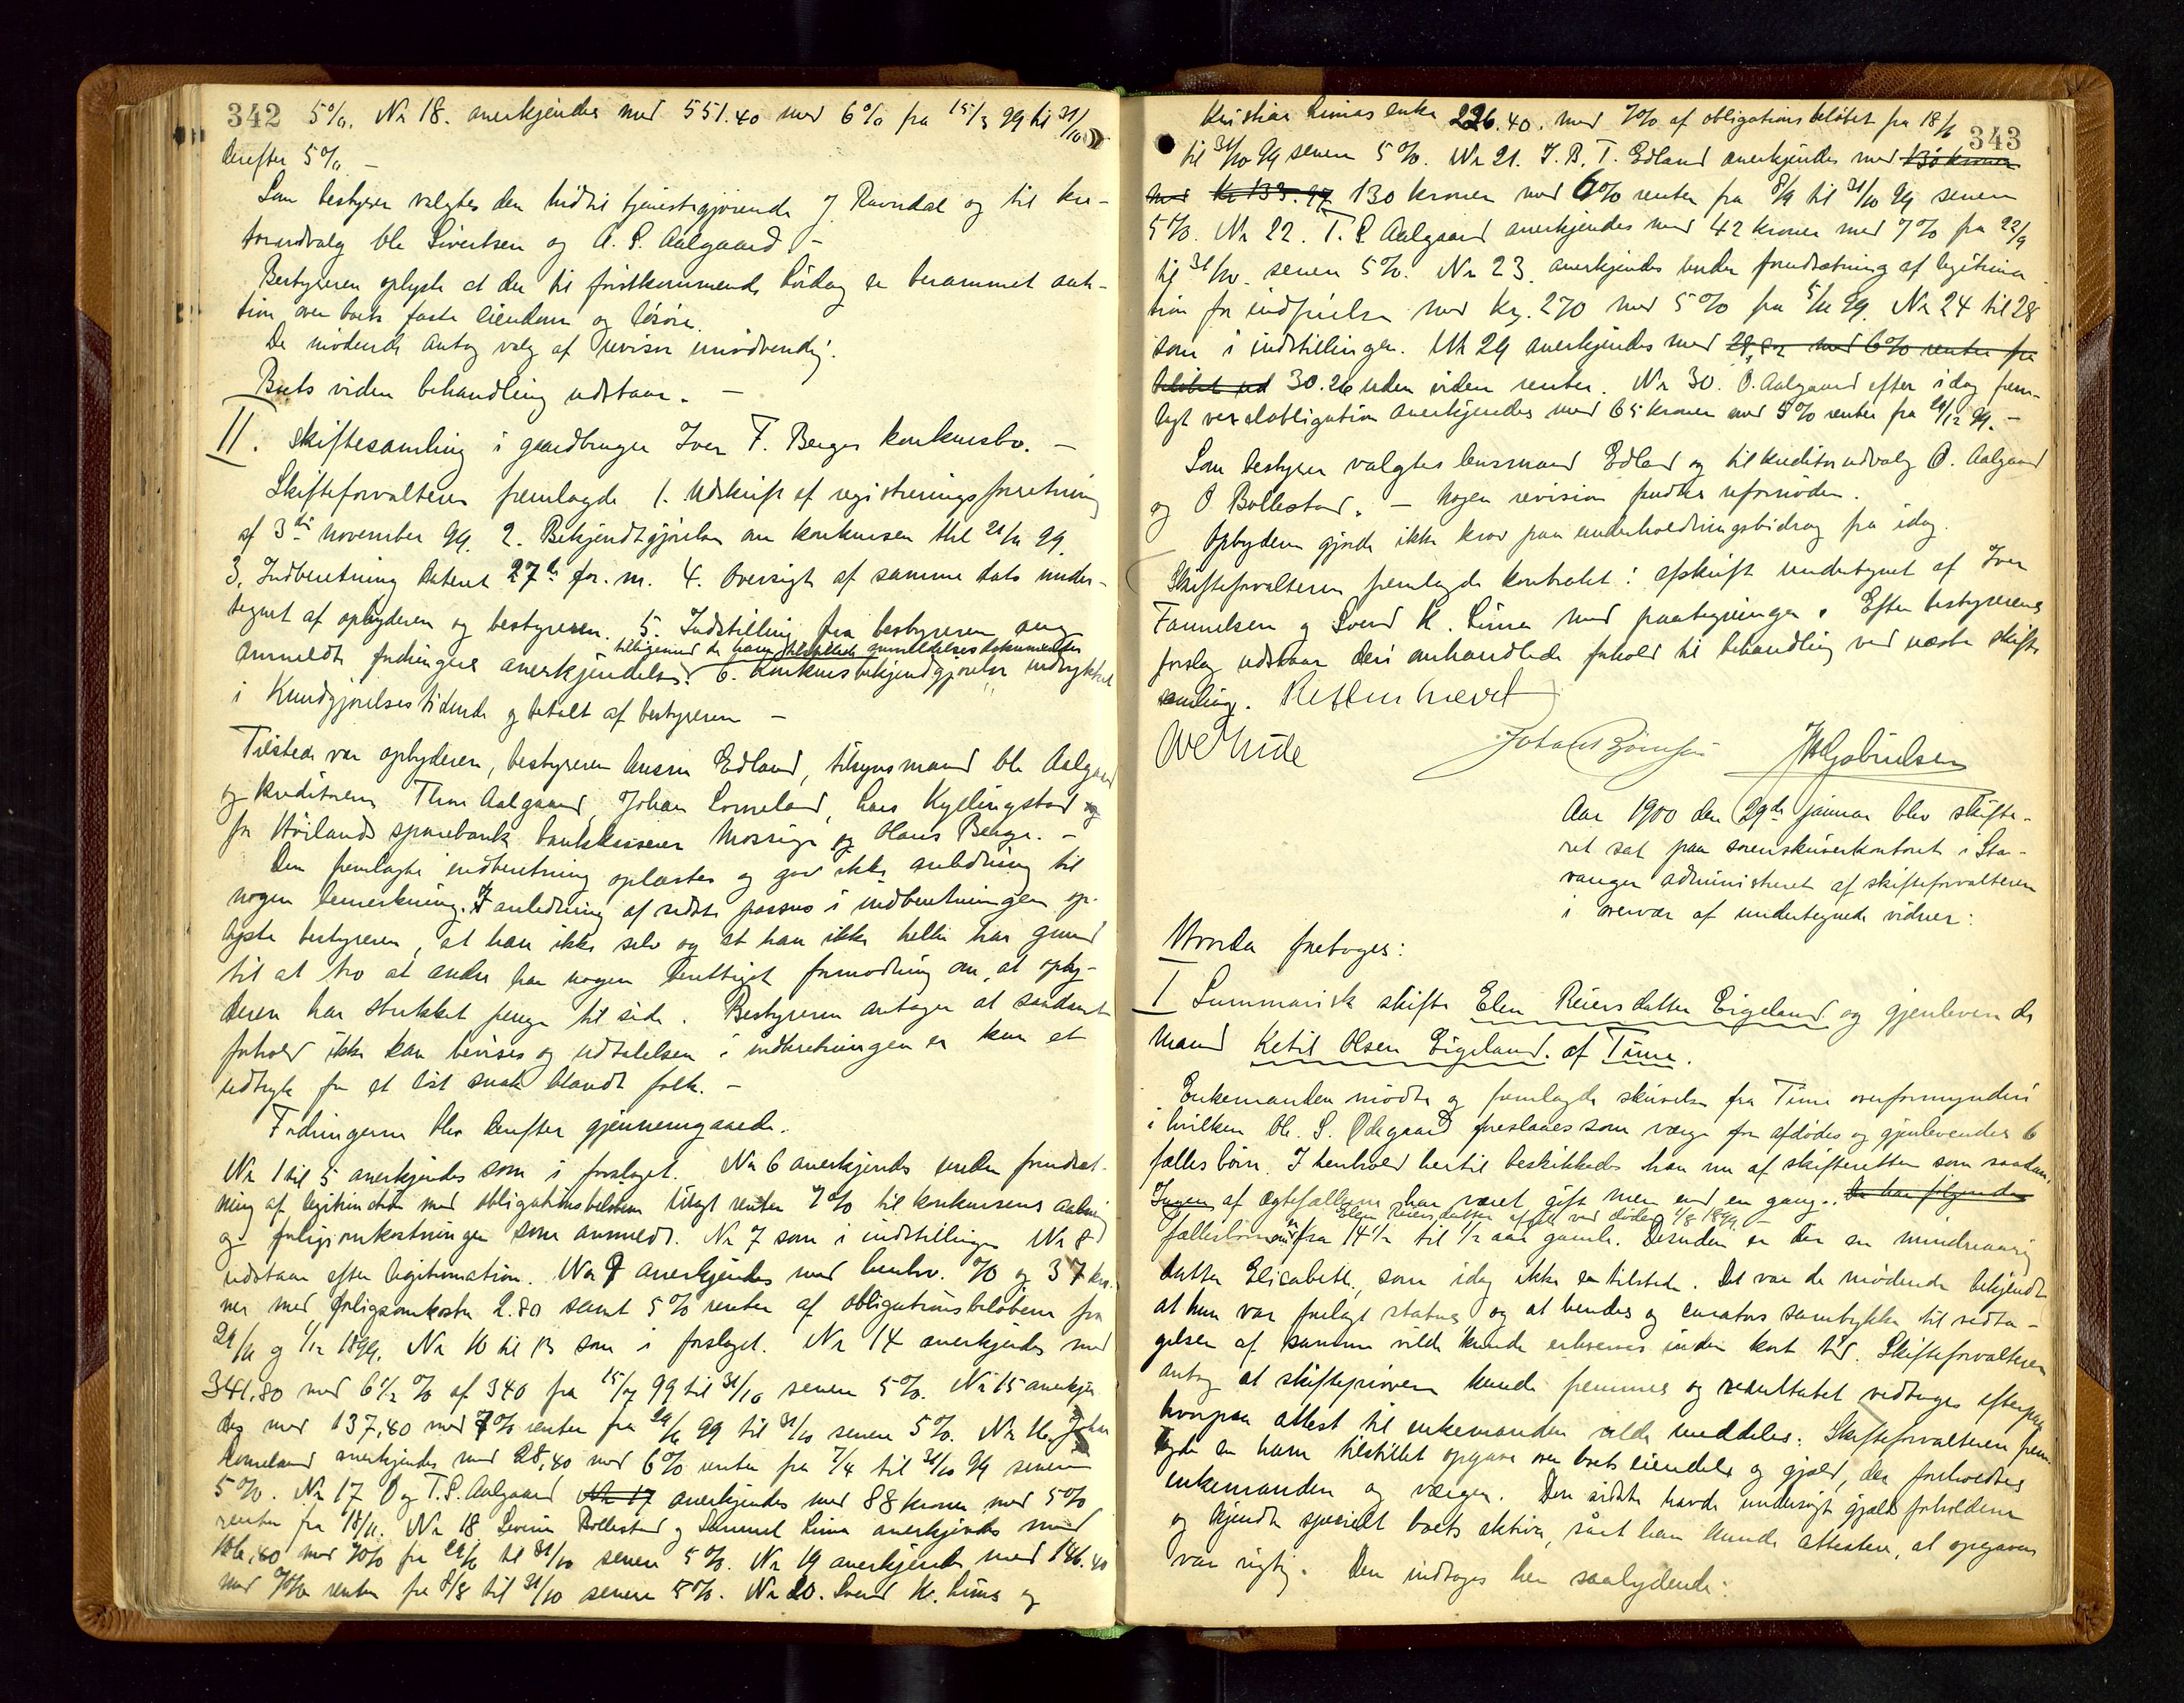 342 5%. Nr 18. anerkjendes med 551.40 med 6% fra 15/3 99 til 31/10
derefter 5% –
Som bestyrer valgtes den hidtil tjenestgjørende J Ravndal og til kre-
torudvalg ble Sivertsen og A. S. Aalgaard –
Bestyreren oplyste at der til førstkommende lørdag er berammet auk-
tion over boets faste eiendom og løsøre.
De mødende antog valg af revisor unødvendig.
Boets viden behandling udstaar. –
II. Skiftesamling i gaardbruger Iver F. Berges konkursbo. –
Skifteforvalteren fremlagde 1. Udskrift af registreringsforretning
af 3die november 99. 2. Bekjendtgjørelse om konkursen til 21/11 99.
3. Indberetning dateret 27de for. m. 4. Oversigt af samme dato under-
tegnet af opbyderen og bestyreren. 5. Indstilling fra bestyreren ang
tilligemed de ham tilstillede anmeldelsesdokumenter
anmeldte fordringers anerkjendelse. 6. Konkursbekjendtgjørelse indrykket
i Kundgjørelsestidende og betalt af bestyreren –
Tilstede var opbyderen, bestyreren Edland, tilsynsmand ble Aalgaard
og kreditorerne Thore Aalgaard, Johan Lomeland, Lars Kyllingstad og
for Høilands sparebank bankkasserer Mossige og Hans Berge. –
Den fremlagte indberetning oplæstes og gav ikke anledning til
nogen bemerkning. I anledning af sidste passus i indberetningen op-
lyste bestyreren, at han ikke selv og at han ikke heller har grund
til at tro at andre har nogen berettiget formodning om, at opby-
deren har stukket penge til side. Bestyreren antager at saadant
forhold ikke kan bevises og udtalelsen i indberetningen er kun et
udtryk for et løst snak blandt folk. –
Fordringerne blev derefter gjennemgaaede.
Nr 1 til 5 anerkjendes som i forslaget. Nr 6 anerkjendes under forudsæt-
ning af legitimation med obligationsbeløbene tillagt renter 7% til konkursens aabning
og forligsomkostninger som anmeldt. Nr 7 som i indstillingen Nr 8
udstaar efter legitimation. Nr 9 anerkjendes med henhv. 70 og 37 kro-
ner med forligsomkostn 2.80 samt 5% renter af obligationsbeløbene fra
29/11 og 1/12 1899. Nr 10 til 13 som i forslaget. Nr 14 anerkjendes med
341,80 med 6½% af 340 fra 15/7 99 til 31/10 senere 5%. Nr 15 anerkjen
des med 137,40 med 7% renter fra 29/6 99 til 31/10 senere 5%. Nr 16. Johan
Lomeland anerkjendes med 28,40 med 6% renter fra 7/4 til 31/10 99 senere
5%. Nr 17 O og T. S. Aalgaard Nr 17 anerkjendes med 88 kroner med 5%
renter fra 18/11. Nr 18 Severin Bollestad og Samuel Lima anerkjendes med
166,40 med 7% fra 29/6 til 31/10 senere 5%. Nr 19 anerkjendes med 146.40
med 7% renter fra 8/8 til 31/10 senere 5%. Nr 20. Svend K. Limas og
343
Kristian Limas enke 226.40. med 7% af obligationsbeløbet fra 18/6
til 31/10 99 senere 5%. Nr 21. J. B. T. Edland anerkjendes med 130 kroner
med kr 133.97 130 kroner med 6% renter fra 8/9 til 31/10 99 senere
5%. Nr 22. T. S. Aalgaard anerkjendes med 42 kroner med 7% fra 22/9
til 31/10. senere 5%. Nr 23. anerkjendes under forudsætning af legitima-
tion for indfrielse med Kr. 270 med 5% fra 5/11 99. Nr 24 til 28
som i indstillingen. Nr 29 anerkjendes med 28,82 med 6% renter fra
beløbet ud 30.26 uden viden renter. Nr 30. O. Aalgaard efter idag frem-
lagt vexelobligation anerkjendes med 65 kroner med 5% renter fra 29/12 99. –
Som bestyrer valgtes lensmand Edland og til kreditorudvalg O. Aalgaard
og O Bollestad. – Nogen revision fandtes ufornøden.
Opbyderen gjorde ikke krav paa underholdningsbidrag fra idag.
Skifteforvalteren fremlagde kontrakt i afskrift undertegnet af Iver
Tønnesen og Svend K. Lima med paategninger. Efter bestyrerens
forslag udstaar deri omhandlede forhold til behandling ved næste skifte
samling. Retten hævet
Johan Bjørnsen JHGabrielsen
Aar 1900 den 29de januar blev skifte-
ret sat paa sorenskriverkontoret i Sta-
vanger administreret af skifteforvalteren
i overvær af undertegnede vidner:
Hvorda foretoges:
I Summarisk skifte Elen Reiersdatter Eigeland og gjenlevende
mand Ketil Olsen Eigeland. af Time.
Enkemanden mødte og fremlagde skrivelse fra Time overformynderi
i hvilken Ole. S. Ødegaard foreslaaes som værge for afdødes og gjenlevendes 6
fælles børn. I henhold hertil beskikkedes han nu af skifteretten som saadan.
Ingen af ægtefællerne har været gift mer end en gang. De har følgende
Elen Reiersdatter afgik ved døden 1/8 1899 –
fællesbørn er fra 14½ til ½ aar gamle. Desuden er der en mindreaarig
datter Elisabeth, som idag ikke er tilstede. Det var de mødende bekjendt
at hun var forelagt status og at hendes og curators samtykke til vedta-
gelsen af samme vilde kunde erhverves inden kort tid. Skifteforvalteren
antog at skifteprøven kunde fremmes og resultatet vedtages efterpaa
hvorpaa attest til enkemanden vilde meddeles. Skifteforvalteren frem-
lagde en ham tilstillet opgave over boets eiendele og gjæld, der foreholdtes
enkemanden og værgen. Den sidste havde undersøgt gjældsforholdene
og kjendte specielt boets aktiva, saat han kunde attestere, at opgaven
var rigtig. Den indtages her saalydende: